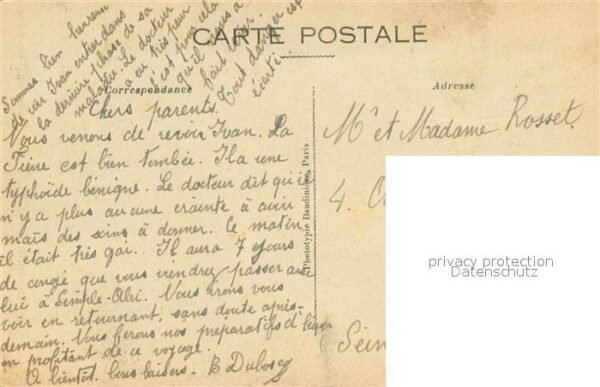 CARTE POSTALE
Correspondance
Adresse
Sommes bien heureux
de voir Ivan entrer dans
la dernière phase de sa
maladie. Le docteur
a eu très peur
c'est pour cela
qu'il nous a
fait
Tout danger est
écarté.
Chers parents.
Vous venons de revoir Ivan. La
Fièvre est bien tombée. Il a une
typhoïde bénigne. Le docteur dit qu'il
n'y a plus aucune crainte à avoir
mais des soins à donner. Ce matin
il était très gai. Il aura 7 jours
de congé que vous viendrez passer avec
lui à . Nous irons vous
voir en retournant, sans doute après-
demain. Nous ferons nos préparatifs d'hiver
en profitant de ce voyage.
A bientôt, bons baisers. B Duboscq
Phototypie Baudinière, Paris
Mr et Madame Rosset.
4.
Sein
privacy protection
Datenschutz